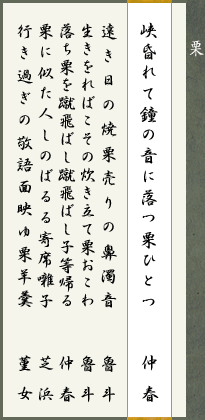 栗
峡昏れて鐘の音に落つ栗ひとつ 仲春
遠き日の焼栗売りの鼻濁音 魯斗
生きをればこその炊き立て栗おこわ 魯斗
落ち栗を蹴飛ばし蹴飛ばし子等帰る 仲春
栗に似た人しのばるる寄席囃子 芝浜
行き過ぎの敬語面映ゆ栗羊羹 菫女